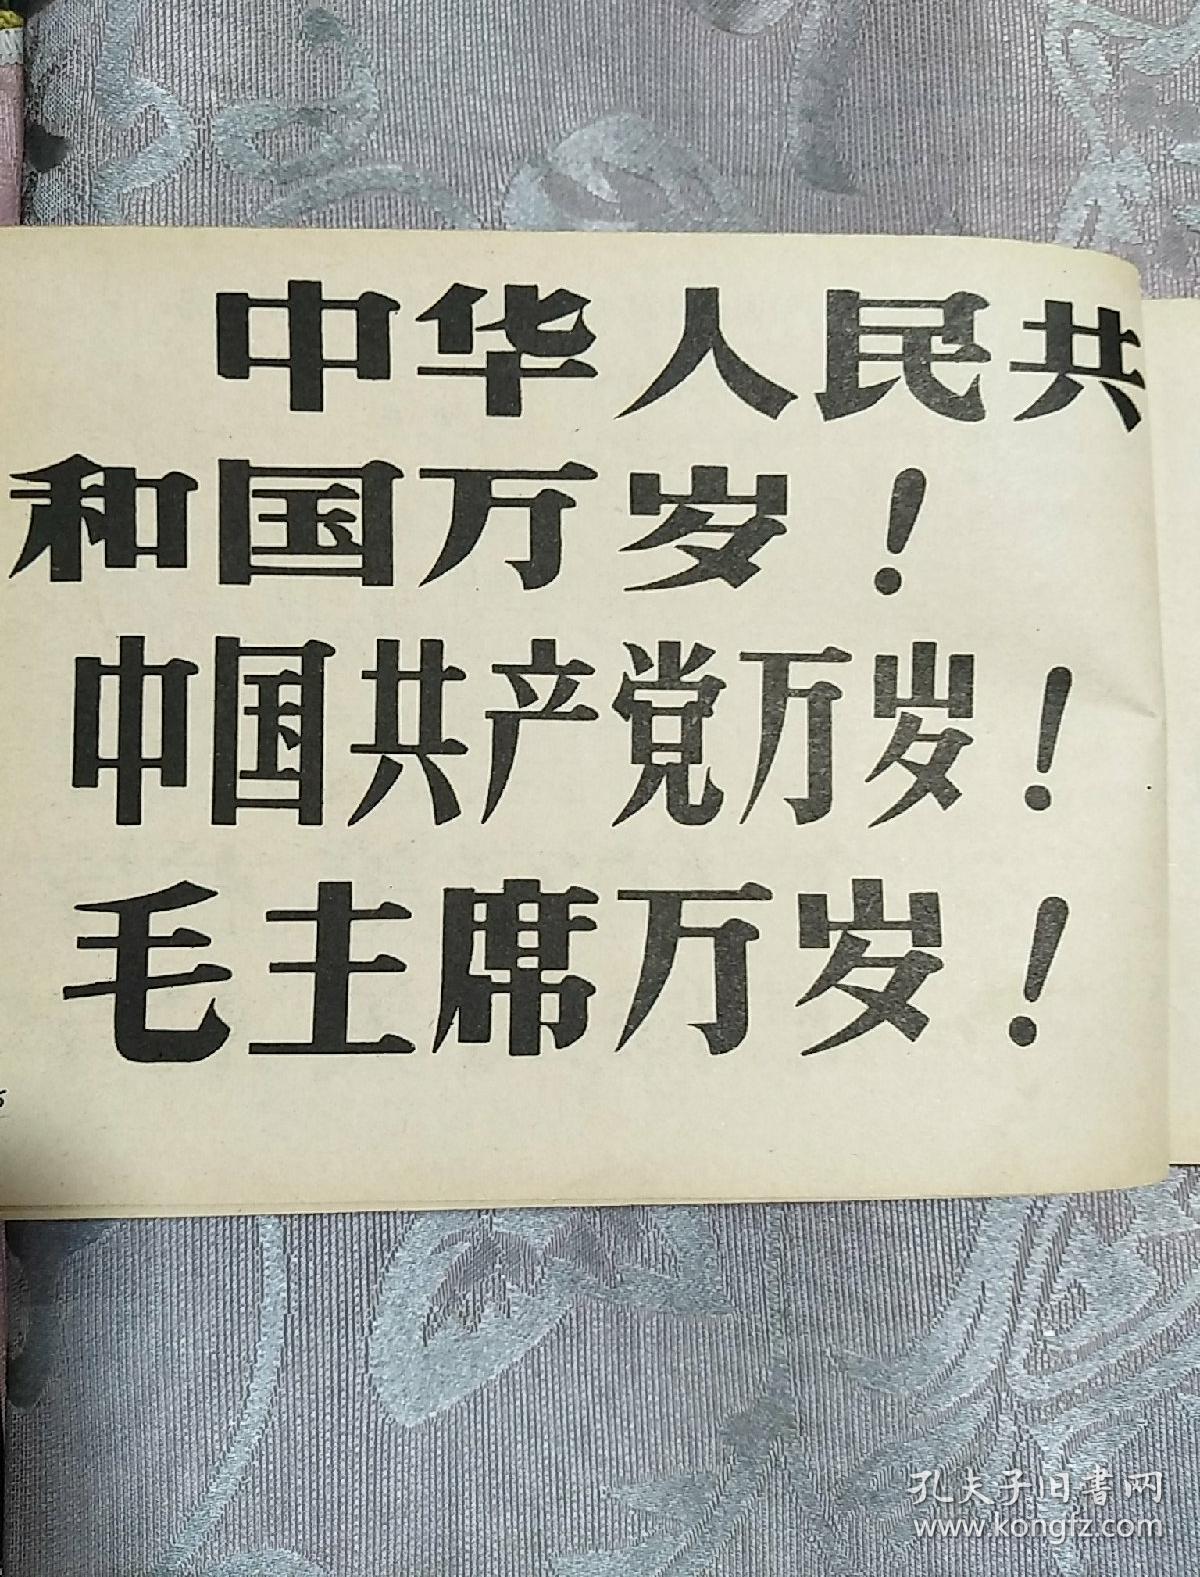 中华人民共
和国万岁！
中国共产党万岁！
毛主席万岁！
孔夫子旧书网
www.kongfz.com